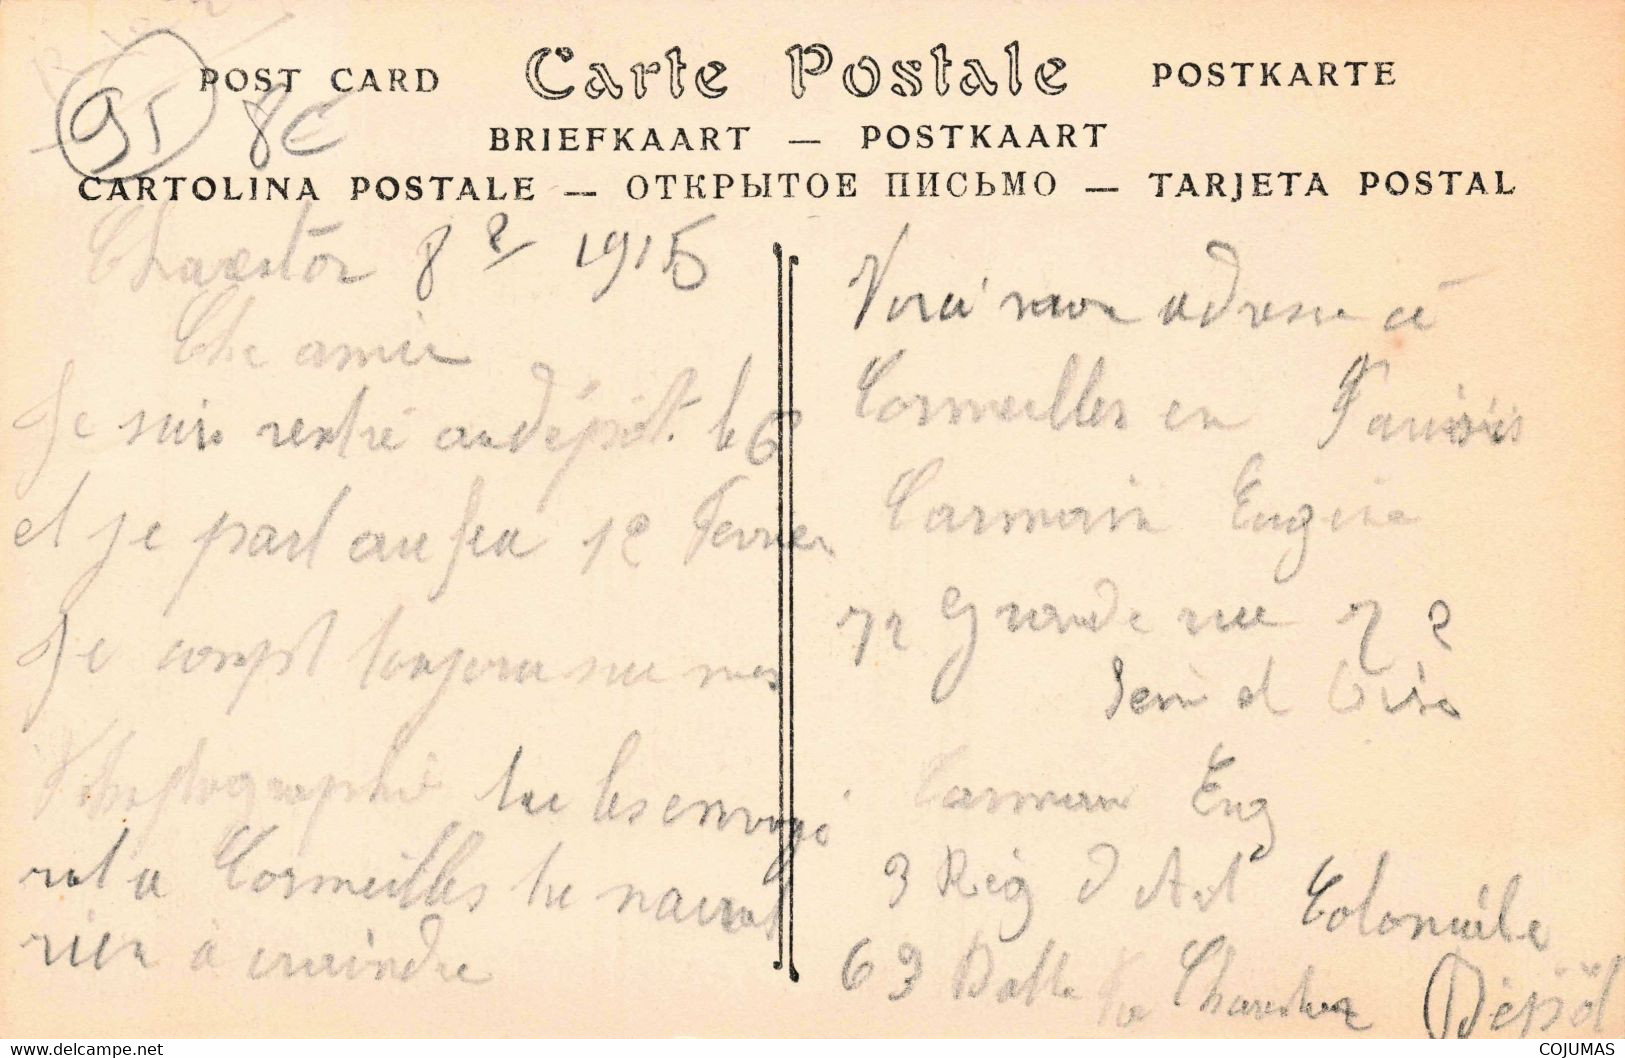 95 8€
POST CARD Carte Postale POSTKARTE
BRIEFKAART — POSTKAART
CARTOLINA POSTALE — ОТКРЫТОЕ ПИСЬМО — TARJETA POSTAL
8 2 1915
Che amie
Je suis rentré au dépôt le 6
et je part au feu 12 Fevrier
Je compt toujour sur mes
Phoptographie tu les envoye
rat a Cormeilles tu naurat
rien à craindre
Voici mon adresse à
Cormeilles en Parisis
Carmain Eugine
72 Grande rue 72
Seine et Oise
Carmain Eug
3 Rég d Art Coloniale
63 Batte Dépôt
COJUMAS